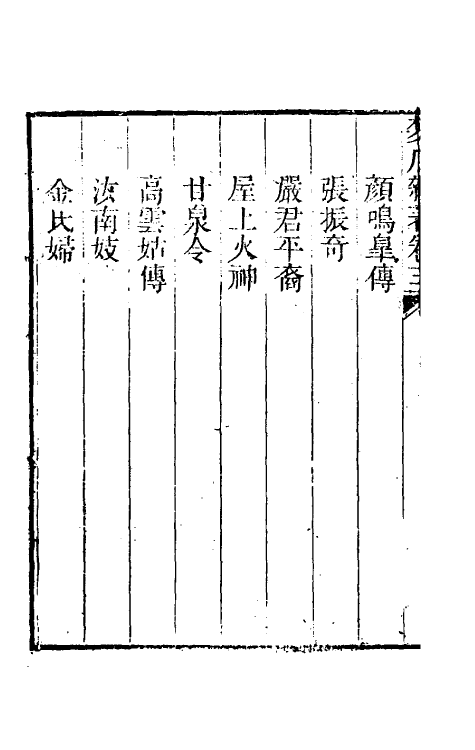 顏鳴臯傳
張振奇
嚴君平裔
屋上火神
甘泉令
高雲姑傳
汝南妓
金氏婦